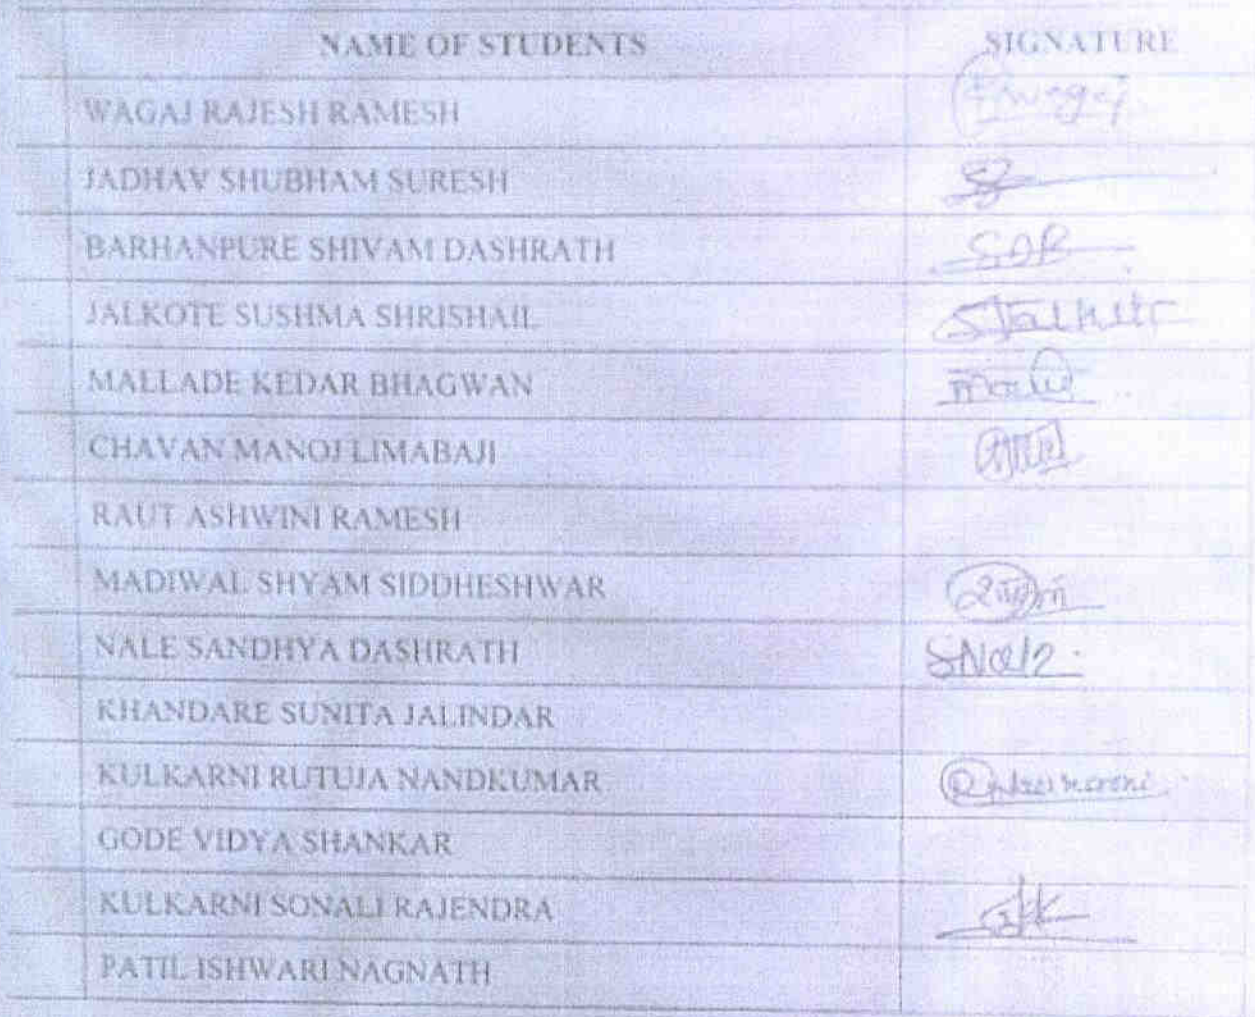 NAME OF STUDENTS SIGNATURE
WAGAJ RAJESH RAMESH
JADHAV SHUBHAM SURESH
BARHANPURE SHIVAM DASHRATH SDB
JALKOTE SUSHMA SHRISHAIL
MALLADE KEDAR BHAGWAN
CHAVAN MANOJ LIMABAJI
RAUT ASHWINI RAMESH
MADIWAL SHYAM SIDDHESHWAR
NALE SANDHYA DASHRATH SNale
KHANDARE SUNITA JALINDAR
KULKARNI RUTUJA NANDKUMAR
GODE VIDYA SHANKAR
KULKARNI SONALI RAJENDRA
PATIL ISHWARI NAGNATH